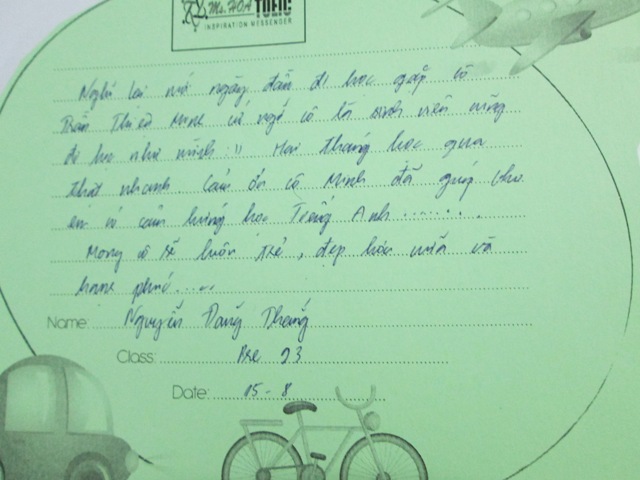 Ms. HOA TOEIC
INSPIRATION MESSENGER
Nghĩ lại mới ngày đầu đi học gặp cô
Trần Thị Minh cứ ngỡ cô là sinh viên cũng
đi học như mình :)) Hai tháng học qua
thật nhanh Cảm ơn cô Minh đã giúp cho
em có cảm hứng học Tiếng Anh ........
Mong cô sẽ luôn trẻ, đẹp hơn nữa và
hạnh phúc.....
Name: Nguyễn Đăng Thắng
Class: Pre 93
Date: 15 - 8